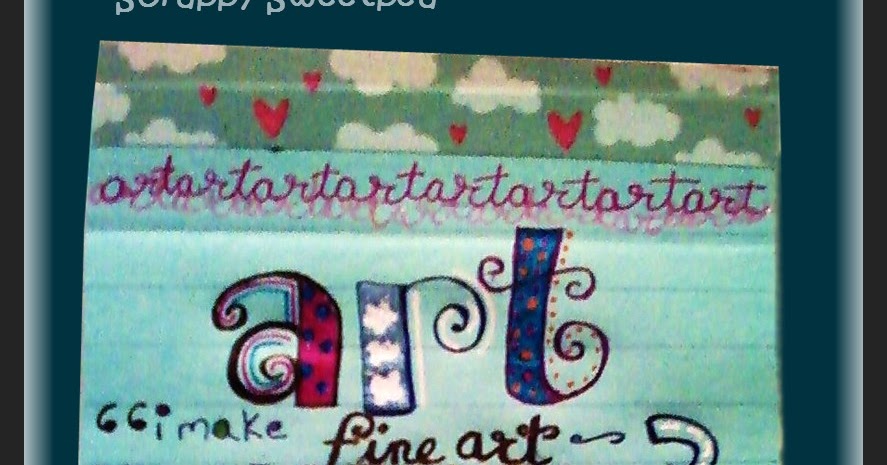 Scrappy Sweetpea
artartartartartartartart
art
“i make fine art ~